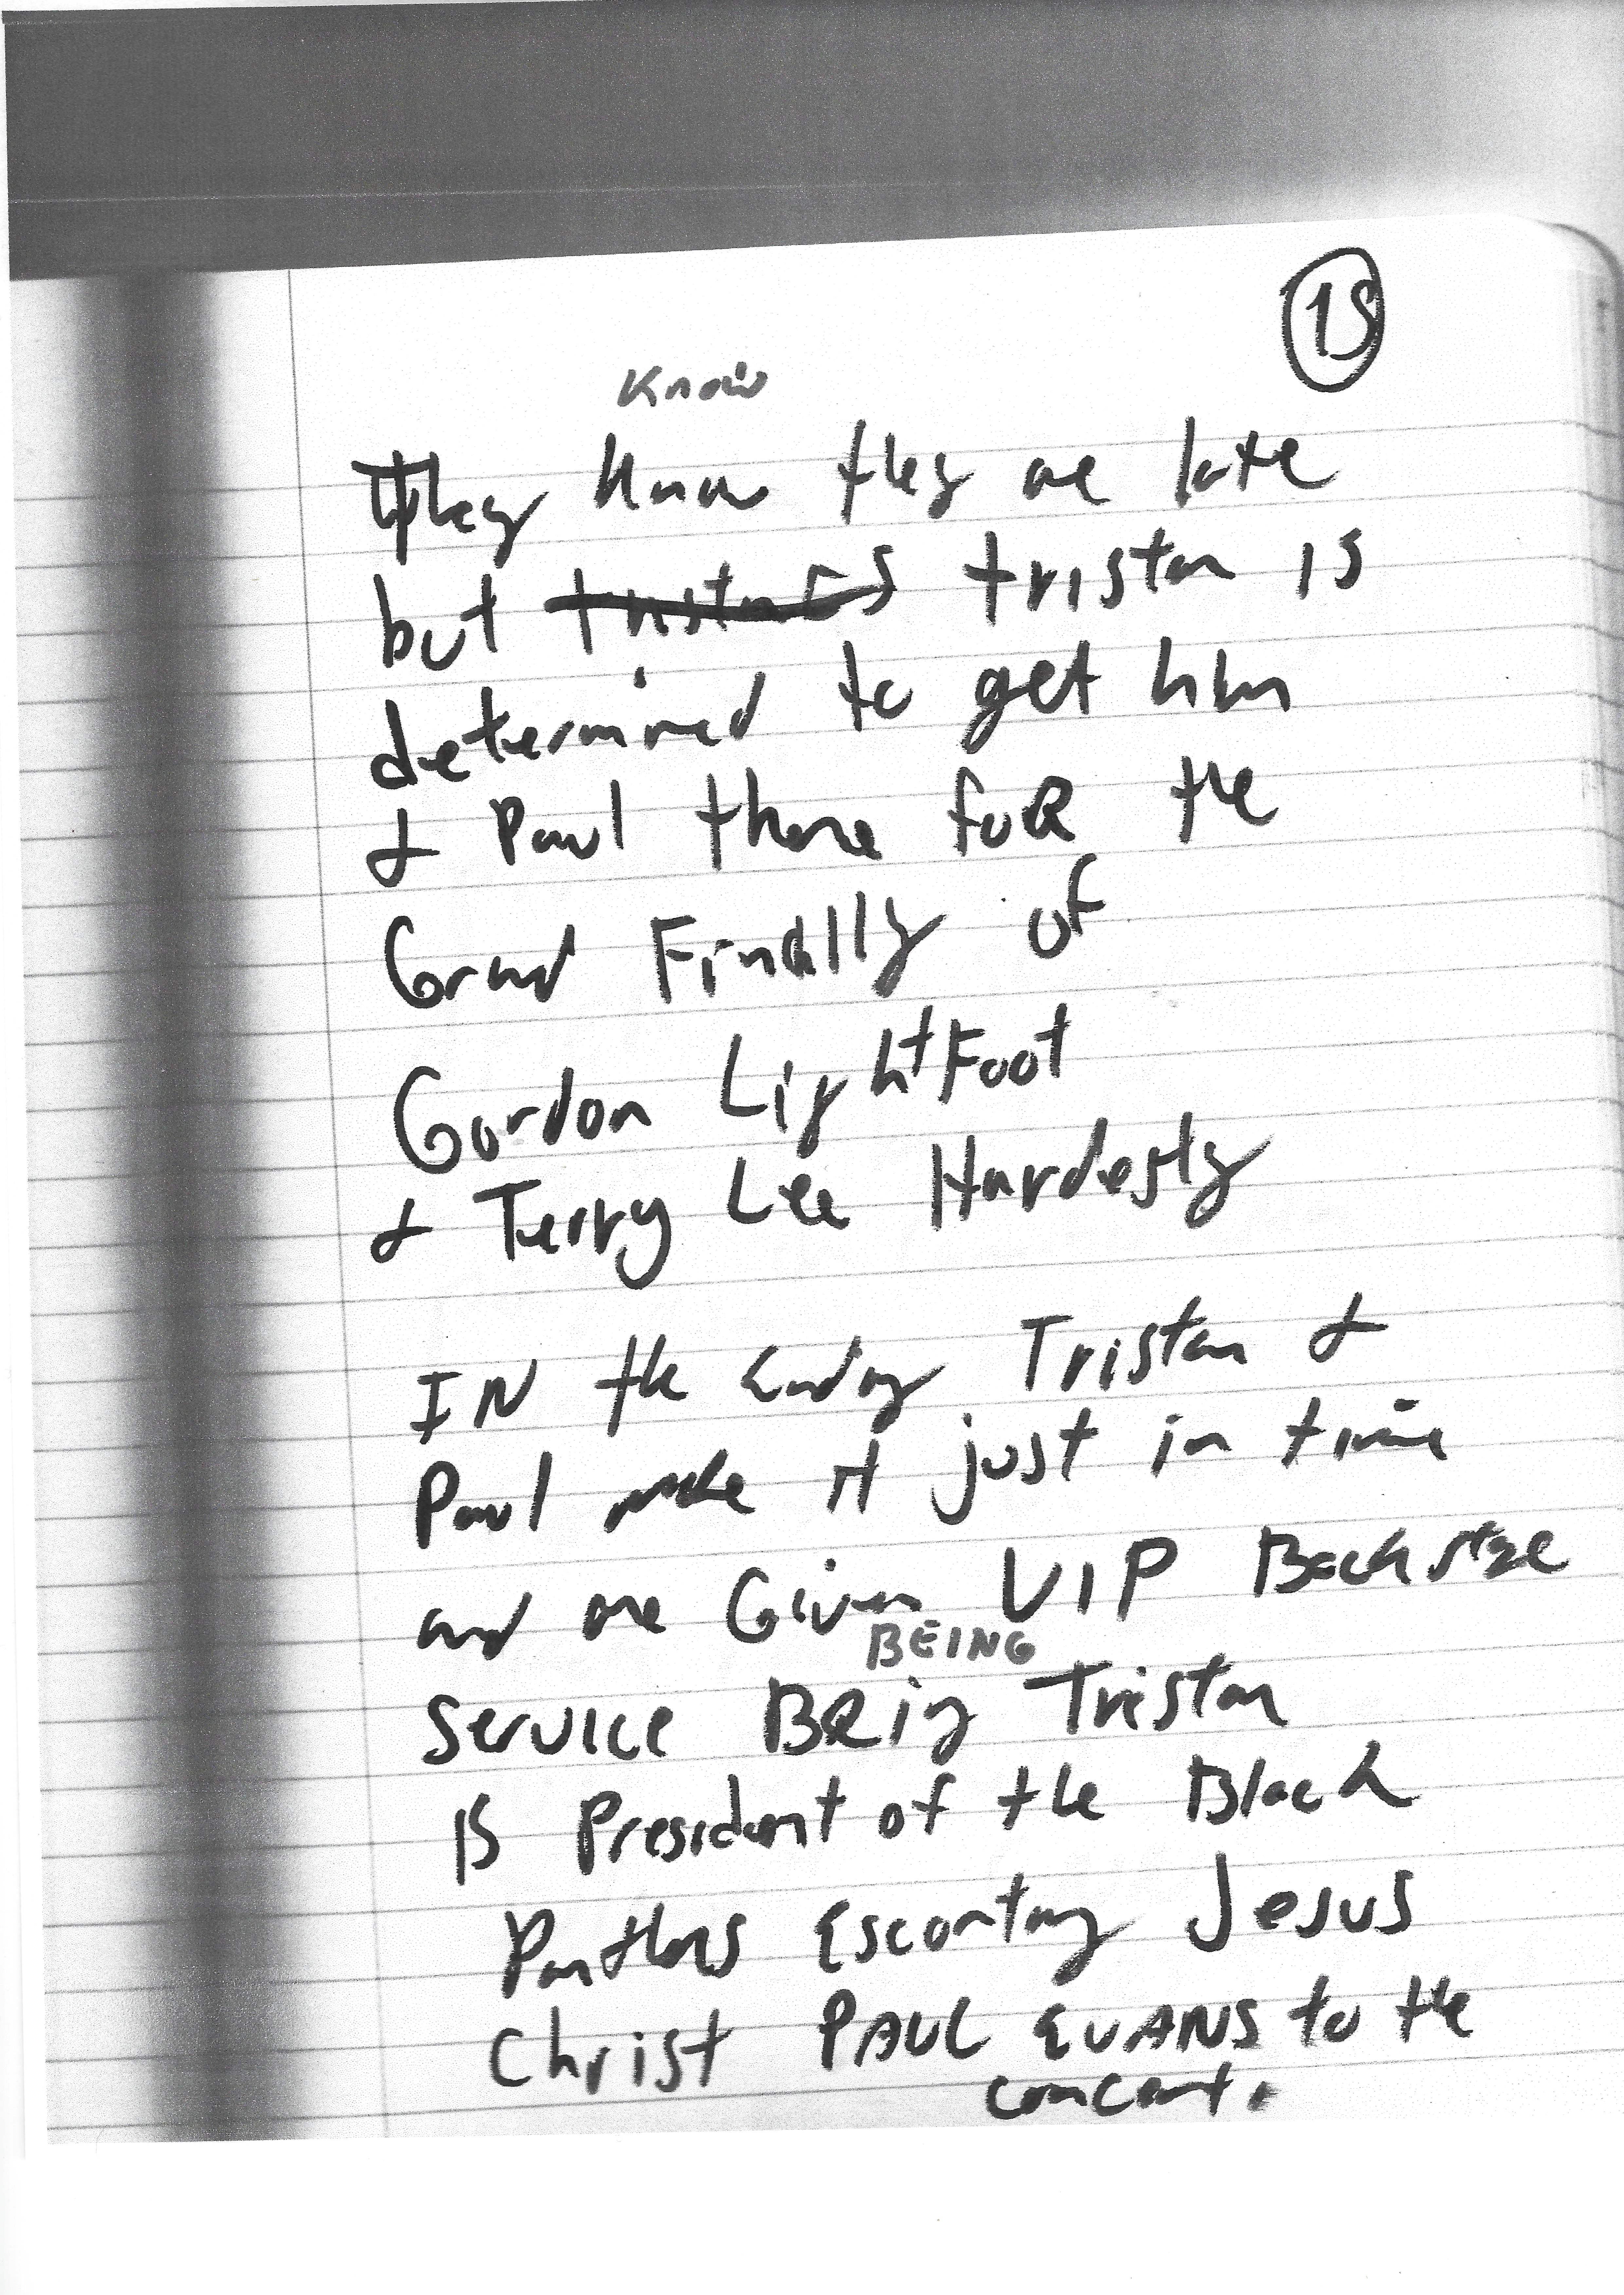 15
Know
They know they are late
but tristan is
determined to get him
& Paul there foR the
Grand Finally of
Gordon LightFoot
& Terry Lee Hardesty
IN the Ending Tristan &
Paul make it just in time
and are Given VIP Backstage
BEING
Service BEing Tristan
IS President of the Black
Panthers Escorting Jesus
Christ PAUL EVANS to the
concert.